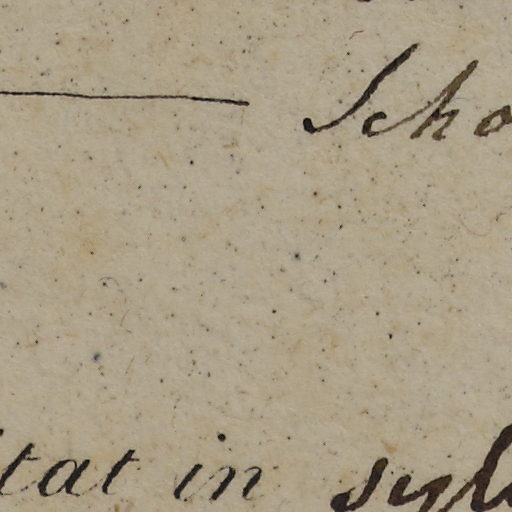 Scho
itat in syl